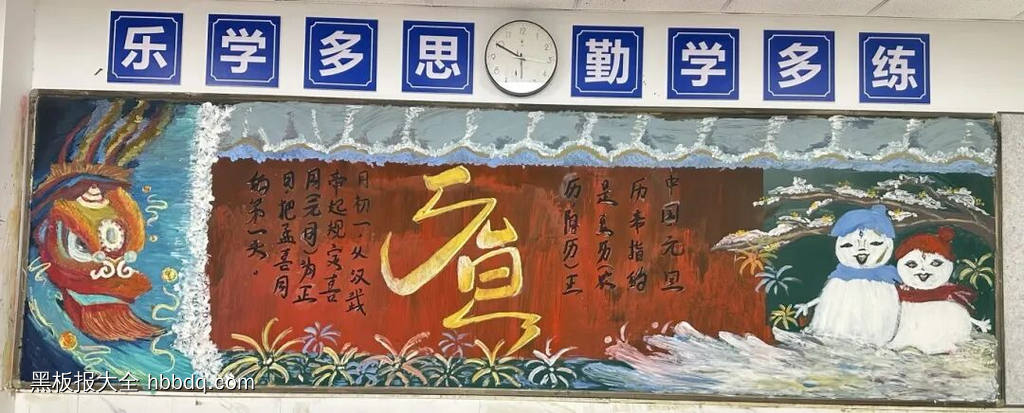 乐学多思 勤学多练
中国元旦
历来指的
是夏历(农
历阴历)正
元旦
月初一 从汉武
帝起规定喜
月元月为正
月把孟喜月
的第一天。
黑板报大全 hbbdq.com